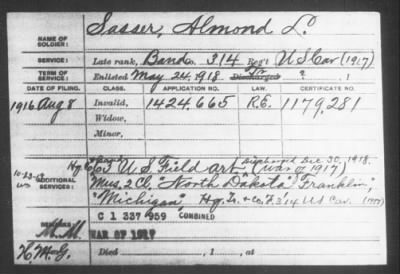 NAME OF SOLDIER: Sasser, Almond L.
SERVICE: Late rank, Band Co. 314 Reg't U S Cav (1917)
TERM OF SERVICE: Enlisted May 24, 1918. Discharged ?, 1
DATE OF FILING. CLASS. APPLICATION NO. LAW. CERTIFICATE NO.
1916 Aug 8 Invalid, 1424,665 R.E. 1179,281
Widow,
Minor,
ADDITIONAL SERVICES: U S Field Art Discharged Dec 30, 1918. (War of 1917)
Mus. 2 Cl. "North Dakota" "Franklin",
"Michigan" Hq. Tr. & Co. F, 314 U S Cav. (1917)
REMARKS: C 1 337 959 COMBINED
WAR OF 1917
H.M.G. Died , 1 , at